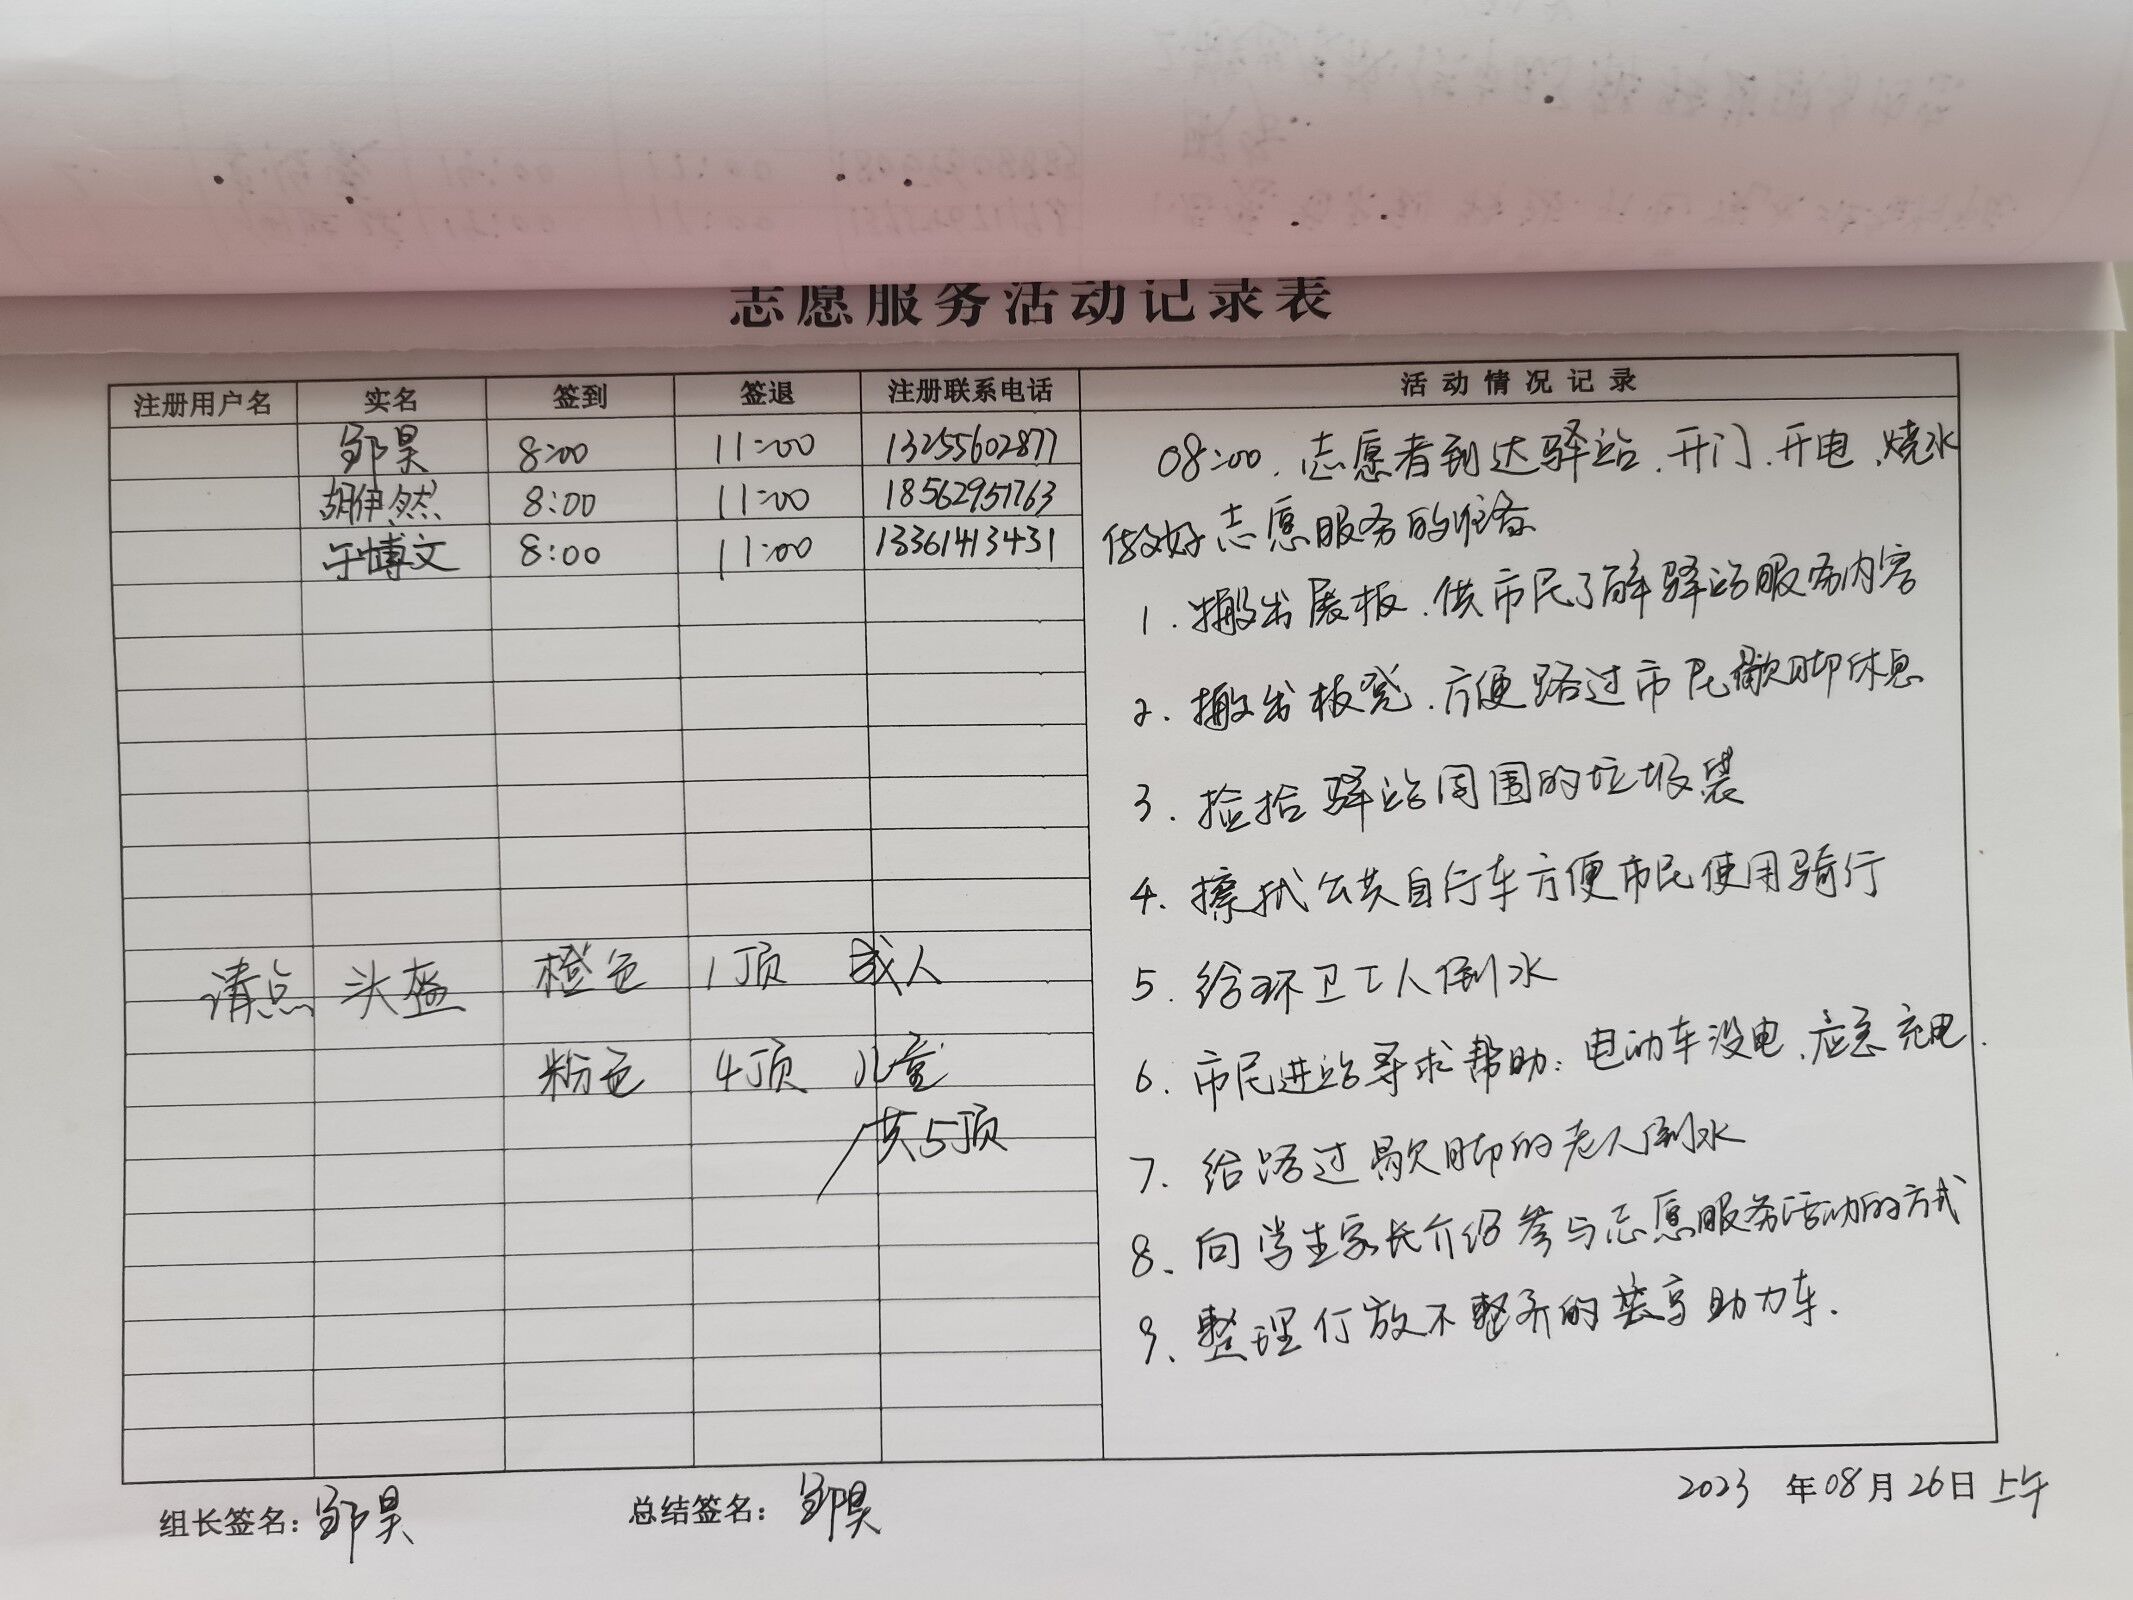 志愿服务活动记录表
注册用户名 实名 签到 签退 注册联系电话 活动情况记录
邹昊 8:00 11:00 13255602877
胡伊然 8:00 11:00 18562951763
于博文 8:00 11:00 13361413431
请点 头盔 橙色 1顶 成人
粉色 4顶 儿童
共5顶
08:00.志愿者到达驿站.开门.开电.烧水
做好志愿服务的准备
1.搬出展板.供市民了解驿站服务内容
2.搬出板凳.方便路过市民歇脚休息
3.捡拾驿站周围的垃圾袋
4.擦拭公共自行车方便市民使用骑行
5.给环卫工人倒水
6.市民进站寻求帮助:电动车没电.应急充电.
7.给路过歇脚的老人倒水
8、向学生家长介绍参与志愿服务活动的方式
9、整理停放不整齐的共享助力车.
组长签名:邹昊 总结签名:邹昊
2023年08月26日上午